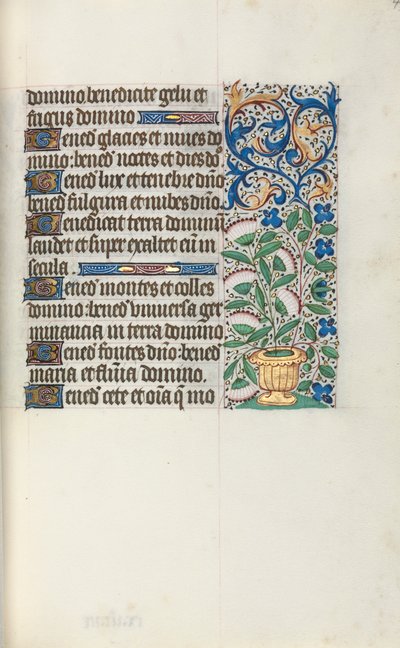 domino. benedicite gelu et
frigus domino
Bened glacies et nives do
mino: bened noctes et dies do
Bened lux et tenebre dno
bened fulgura et nubes dno.
Benedicat terra dominū
laudet et super exaltet eū in
secula.
Bened montes et colles
domino: bened vniversa ger
minancia in terra domino
Bened fontes dno: bened
maria et flūīa domino.
Bened cete et oīa q mo